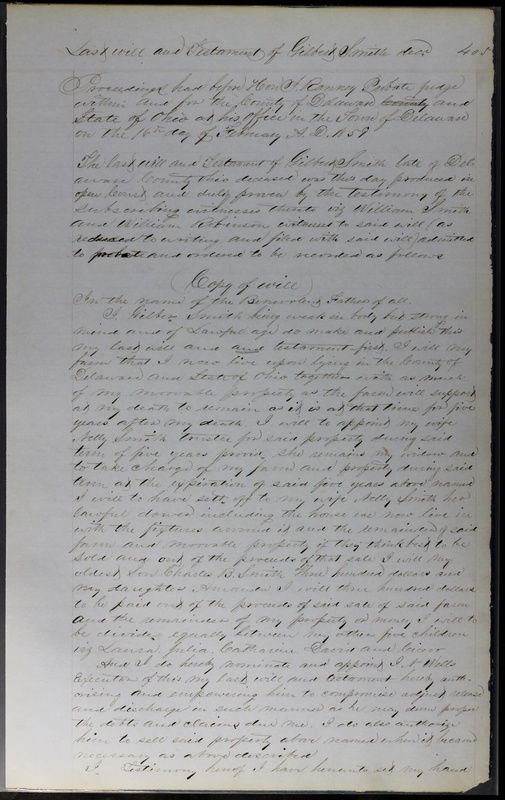 Last will and Testament of Gilbert Smith decd 405
Proceedings had before Hon. T. Romney Probate judge
within and for the County of Delaware County and
State of Ohio at his office in the Town of Delaware
on the 16th day of February A.D. 1859
The last will and Testament of Gilbert Smith late of Del
aware County Ohio deceased was this day produced in
open Court and duly proven by the testimony of the
subscribing witnesses thereto viz William Smith
and William Robinson witnesses to said will (as
reduced to writing and filed with said will) admitted
to probate and ordered to be recorded as follows
(Copy of will)
In the name of the Benevolent Father of all.
I Gilbert Smith being weak in body but strong in
mind and of Lawful age do make and publish this
my last will and and testament first. I will my
farm that I now live upon lying in the County of
Delaware and State of Ohio together with as much
of my moovable property as the farm will support
at my death to remain as it is at that time for five
years after my death I will to appoint my wife
Nelly Smith trustee for said property during said
term of five years provid she remains my widow and
to take charge of my farm and property during said
term at the expiration of said five years above named
I will to have sett off to my wife Nelly Smith her
lawful dower including the house we now live in
with the fixtures around it and the remainder of said
farm and moovable property if they think best to be
sold and out of the proceeds of that sale I will my
oldest Son Charles B. Smith three hundred dollars and
my daughter Amanda I will three hundred dollars
to be paid out of the proceeds of said sale of said farm
and the remainder of my property or money I will to
be divided equally between my other five children
viz Louisa, Julia, Catharine David and
And I do hereby nominate and appoint Wells
Executor of this my last will and testament hereby auth-
orising and empowering him to compromise adjust release
and discharge in such manner as he may deem proper
the debts and claims due me. I do also authorize
him to sell said property above named when it became
necessary as above described
I. Testimony hereof I have hereunto set my hand